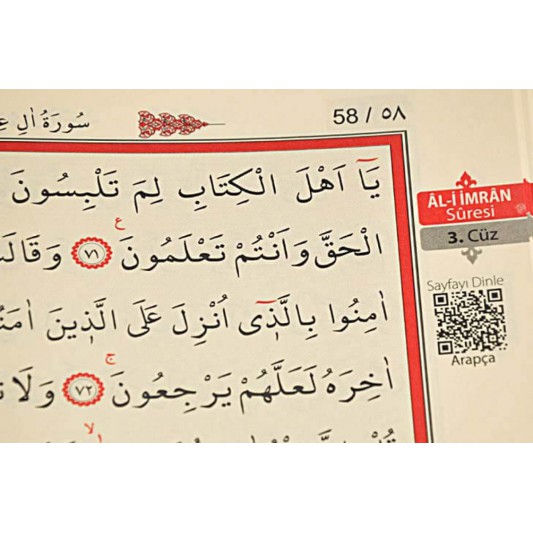 سُورَةُ اٰلِ
58 / ٥٨
يَٓا اَهْلَ الْكِتَابِ لِمَ تَلْبِسُونَ
الْحَقَّ وَاَنْتُمْ تَعْلَمُونَ ع ﴿٧١﴾ وَقَالَتْ
اٰمِنُوا بِالَّذ۪ٓي اُنْزِلَ عَلَى الَّذ۪ينَ اٰمَنُ
اٰخِرَهُ لَعَلَّهُمْ يَرْجِعُونَ ج ﴿٧٢﴾ وَلَا
ÂL-İ İMRÂN
Sûresi
3. Cüz
Sayfayı Dinle
Arapça